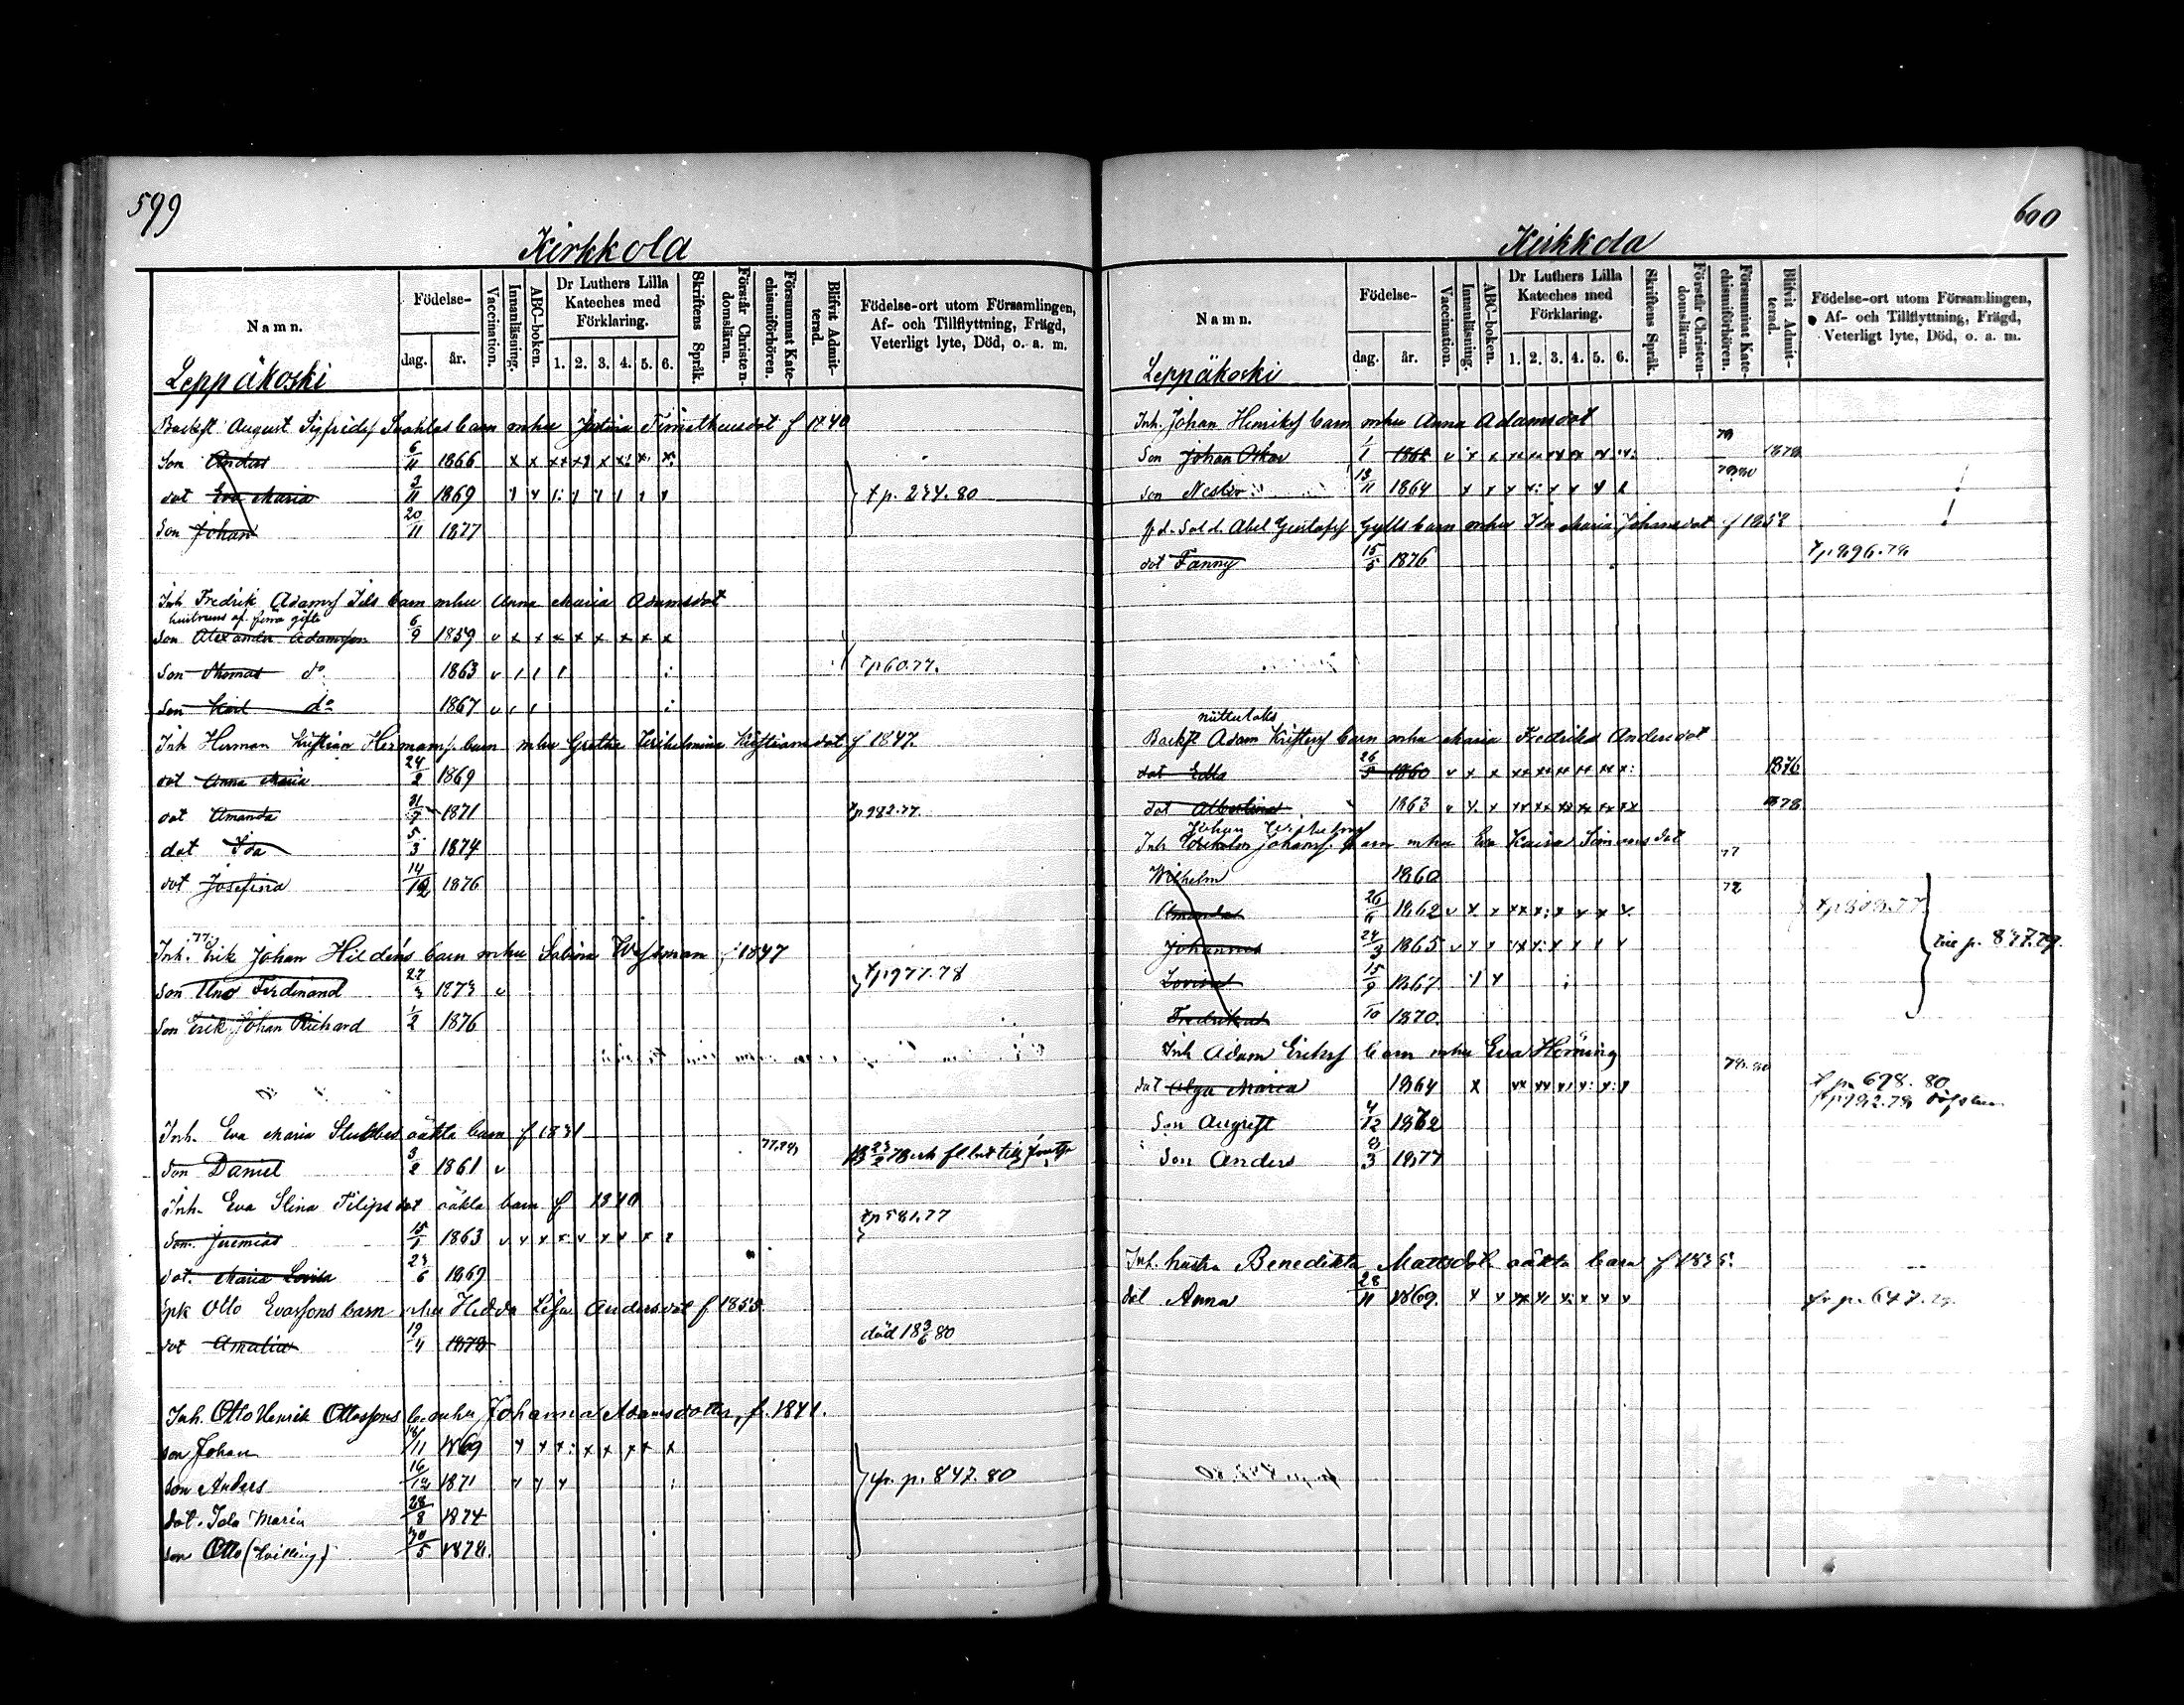 599
Kirkkola
Namn.
Födelse-
dag.
år.
Vaccination.
Innanläsning.
ABC-boken.
Dr Luthers Lilla Kateches med Förklaring.
1. 2. 3. 4. 5. 6.
Skriftens Språk.
Förstår Christendomsläran.
Försummat Katechismiförhören.
Blifvit Admitterad.
Födelse-ort utom Församlingen,
Af- och Tillflyttning, Frägd,
Veterligt lyte, Död, o. a. m.
Leppäkoski
Backst August Sigfrids barn mhu Justina Timotheusdot f 1840
Son Anders 6/11 1866
dot Eva Maria 3/11 1869 p. 234. 80
Son Johan 20/11 1877
Inh Fredrik Adams barn mhu Anna Maria Adamsdot
hustruns af förra gifte
Son Alexander Adamsson 6/9 1859
Son Thomas do 1863 p 60.77.
Son Karl do 1867
Inh Herman Kristian Hermans. barn mhu Gretha Wilhelmina Kristiansdot f 1847.
dot Anna Maria 24/2 1869
dot Amanda 31/7 1871 p 982.77.
dot Ida 5/3 1874
dot Josefina 14/12 1876
Inh. Erik Johan Hildéns barn mhu Sabina Westman f 1847
Son Uno Ferdinand 22/3 1873 p 977.78
Son Erik Johan Richard 1/2 1876
Inh. Eva Maria oäkta barn f 1831
Son Daniel 3/2 1861
Inh. Eva Stina Filipsdot oäkta barn f 1840
Son Jeremias 15/1 1863 p 581.77
dot. Maria Lovisa 23/6 1869
Spk Otto Evassons barn mhu Hedda Lisa Andersdot f 1853
dot Amalia 19/4 1878 död 18 3/6 80
Inh. Otto Henrik Ottossons b. mhu Johanna Adamsdotter, f. 1841.
son Johan 18/11 1869
son Anders 16/12 1871 p. 847. 80
dot. Ida Maria 28/8 1874
son Otto (tvilling) 30/5 1878.
600
Kirkkola
Namn.
Födelse-
dag.
år.
Vaccination.
Innanläsning.
ABC-boken.
Dr Luthers Lilla Kateches med Förklaring.
1. 2. 3. 4. 5. 6.
Skriftens Språk.
Förstår Christendomsläran.
Försummat Katechismiförhören.
Blifvit Admitterad.
Födelse-ort utom Församlingen,
Af- och Tillflyttning, Frägd,
Veterligt lyte, Död, o. a. m.
Leppäkoski
Inh. Johan Henriks barn mhu Anna Adamsdot
Son Johan Oskar 1/1 1862 1878
Son Nestor 13/11 1864
f d. Sold. Abel Gustafs Gylls barn mhu Ida Maria Johansdot f 1852
dot Fanny 15/5 1876 p 896.78
Backst Adam Kristers barn mhu Maria Fredrika Andersdot
dot Edla 26/5 1860 1876
dot Albertina 1863 1878
Johan
Inh Wilhelm Johans. barn mhu Eva Kaisa Simonsdot 77
Wilhelm 1860 72
Amanda 26/6 1862
Johannes 24/3 1865 p. 877.79.
Lovisa 15/9 1867
Fredrika 1870.
Inh Adam Eriks barn mhu Eva Herning
dot Olga Maria 1864 p. 698. 80
Son August 4/12 1862
Son Anders 3/3 1877
Inh. hustru Benedikta Mattsdot. oäkta barn f 1835.
dot Anna 28/11 1869. p. 647.